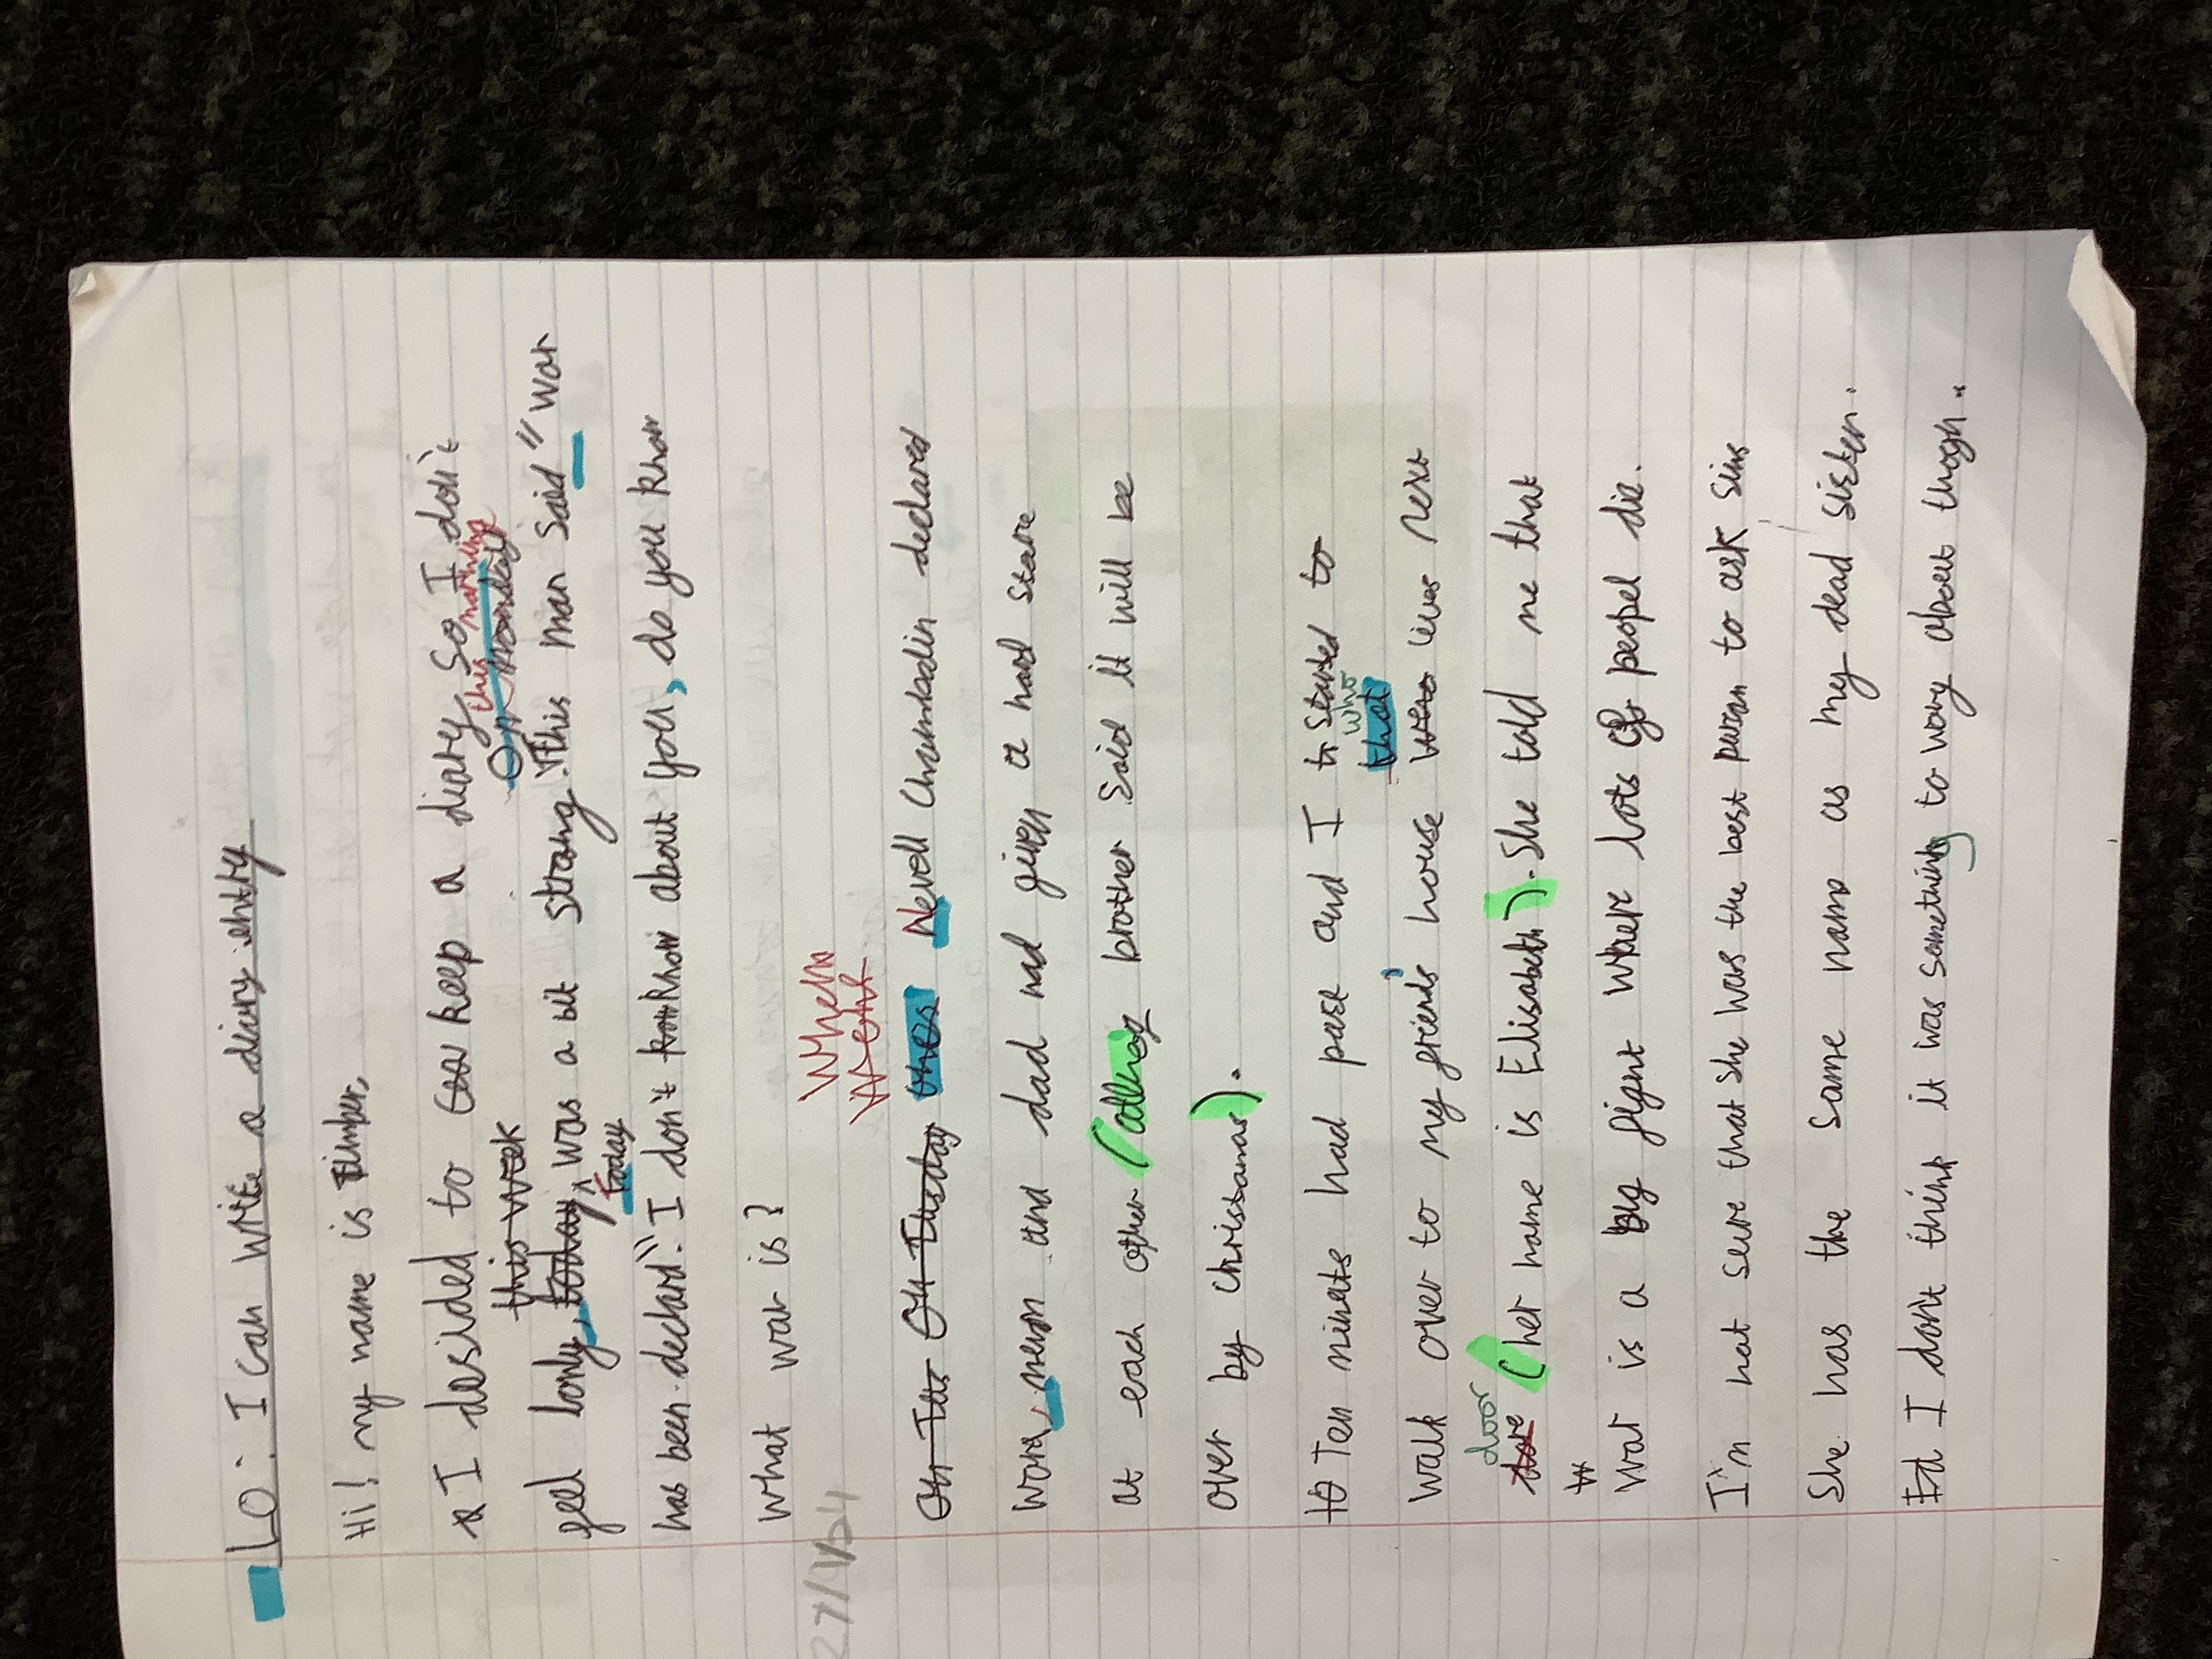 LO: I can write a diary entry
Hi! my name is Timber,
I desided to keep a diary so I don't
this week On this morning Monday
feel lonly, today was a bit strang. This man said "War
today
has been declard." I don't know about you, do you know
what war is?
27/11/24
When
Went
On Tus On Tusday the Nevell Chambadin declared
Wore, mem and dad had given a hard stare
at each other (althoug brother said it will be
over by christamas).
to Ten minets had past and I started to
who
that
walk over to my friend's house were lives next
door
dore (her name is Elisabeth). She told me that
war is a big fight where lots of peopel die.
I'm not sure that she was the best purson to ask sins
She has the same name as my dead sister.
I don't think it was something to wory about thogh.